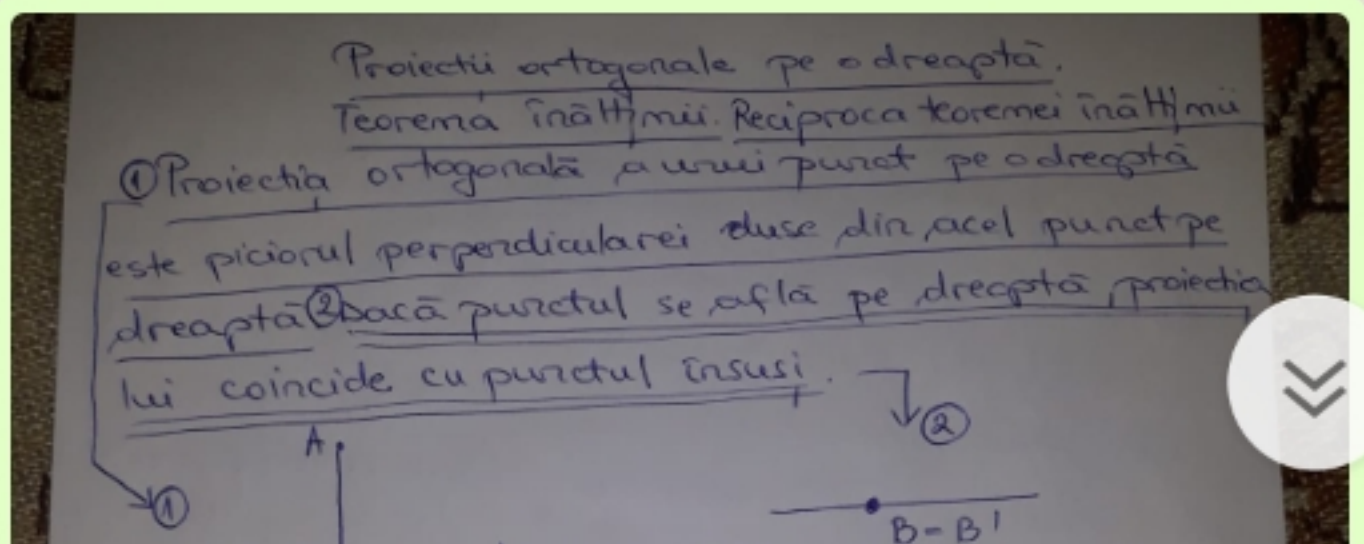 Proiectii ortogonale pe o dreaptă.
Teorema înălțimii. Reciproca teoremei înălțimii
① Proiecția ortogonală a unui punct pe o dreaptă
este piciorul perpendicularei duse din acel punct pe
dreaptă ② Dacă punctul se află pe dreaptă, proiecția
lui coincide cu punctul însuși.
②
A
①
B = B'